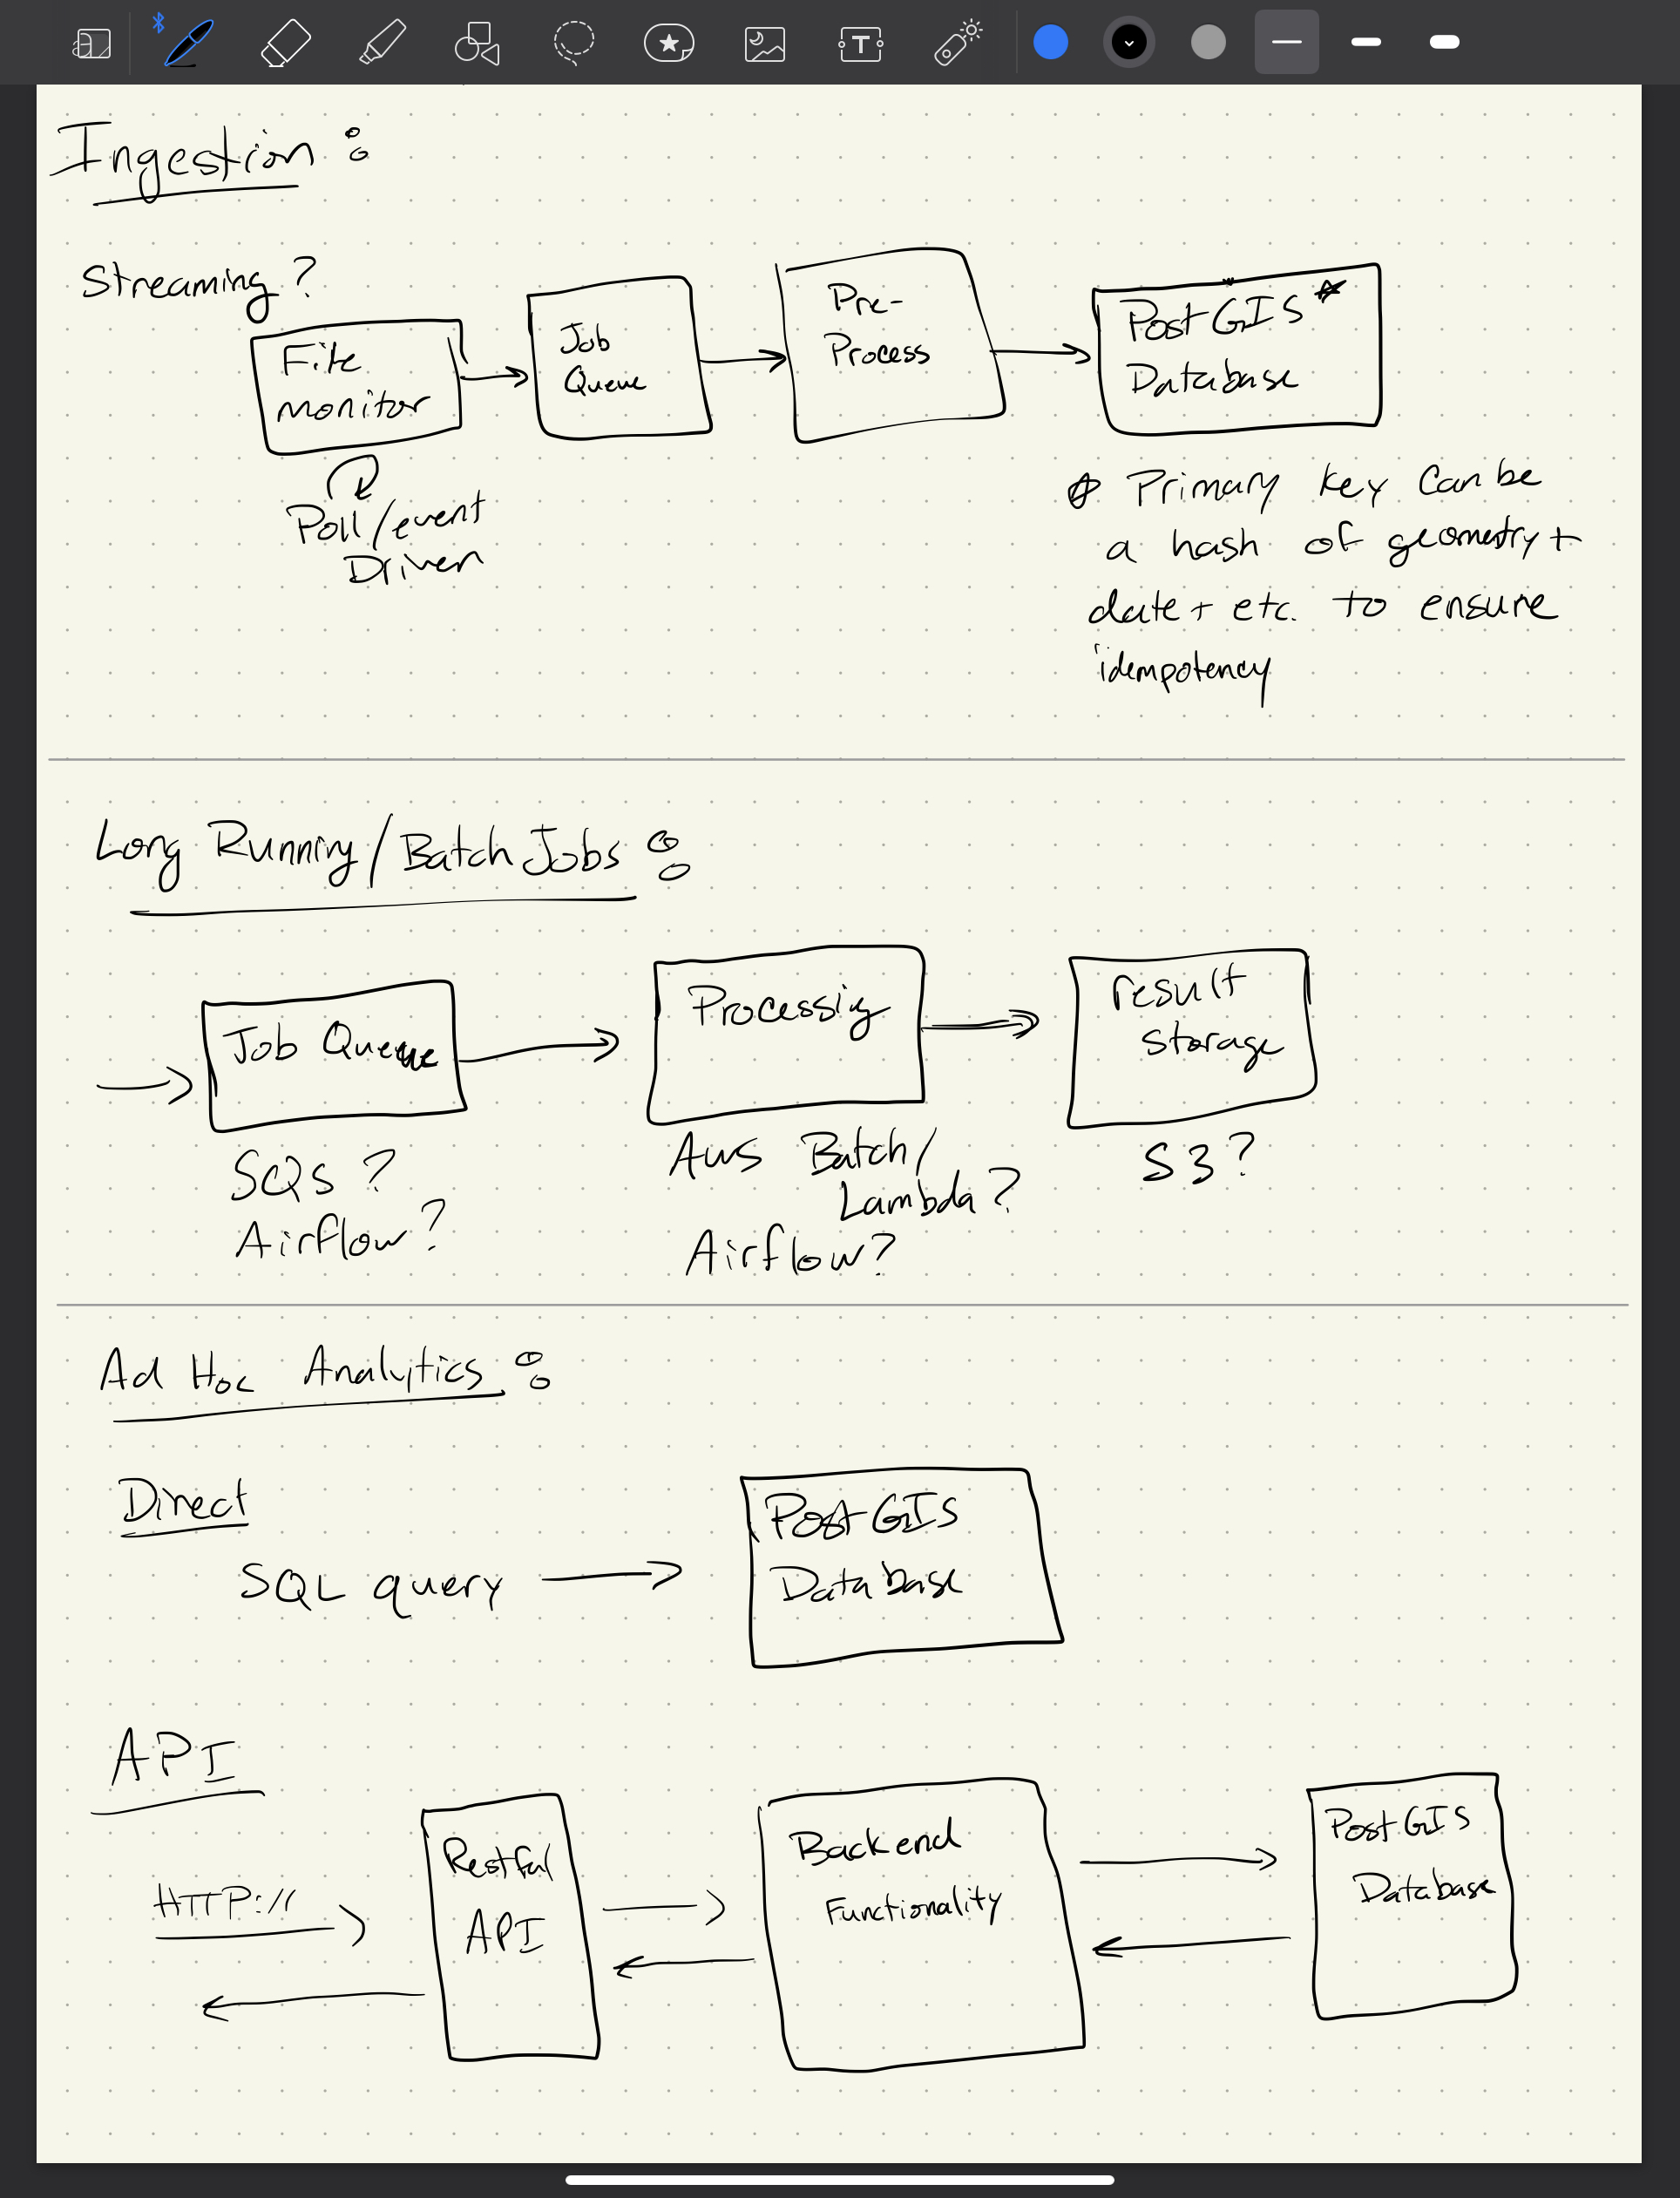 Ingestion:
Streaming?
File
monitor
Poll/event
Driven
Job
Queue
Pre-
Process
PostGIS*
Database
* Primary key can be
a hash of geometry +
date + etc. to ensure
idempotency
Long Running/Batch Jobs:
Job Queue
SQS?
Airflow?
Processing
AWS Batch/
Lambda?
Airflow?
result
storage
S3?
Ad Hoc Analytics:
Direct
SQL query
PostGIS
Database
API
HTTP://
Restful
API
Backend
Functionality
PostGIS
Database